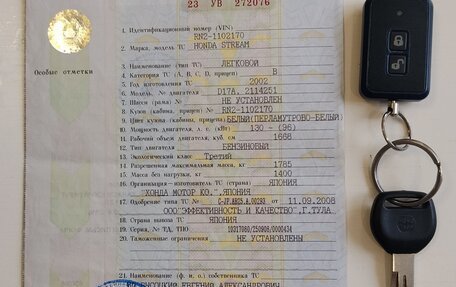 23 УВ 272076
Особые отметки
1. Идентификационный номер (VIN)
RN2-1102170
2. Марка, модель ТС HONDA STREAM
3. Наименование (тип ТС) ЛЕГКОВОЙ
4. Категория ТС (А, В, С, D, прицеп) B
5. Год изготовления ТС 2002
6. Модель, № двигателя D17A, 2114251
7. Шасси (рама) № НЕ УСТАНОВЛЕН
8. Кузов (кабина, прицеп) № RN2-1102170
9. Цвет кузова (кабины, прицепа) БЕЛЫЙ(ПЕРЛАМУТРОВО-БЕЛЫЙ)
10. Мощность двигателя, л. с. (кВт) 130 - (96)
11. Рабочий объем двигателя, куб. см 1668
12. Тип двигателя БЕНЗИНОВЫЙ
13. Экологический класс Третий
14. Разрешенная максимальная масса, кг 1785
15. Масса без нагрузки, кг 1400
16. Организация – изготовитель ТС (страна) ЯПОНИЯ
"ХОНДА МОТОР КО.", ЯПОНИЯ
17. Одобрение типа ТС № C-JP.АЯ25.А.00293 от 11.09.2008
ООО"ЭФФЕКТИВНОСТЬ И КАЧЕСТВО",Г.ТУЛА
18. Страна вывоза ТС ЯПОНИЯ
19. Серия, № ТД, ТПО 10317060/250908/0000434
20. Таможенные ограничения НЕ УСТАНОВЛЕНЫ
21. Наименование (ф. и. о.) собственника ТС
ЕВГЕНИЯ АЛЕКСАНДРОВИЧ